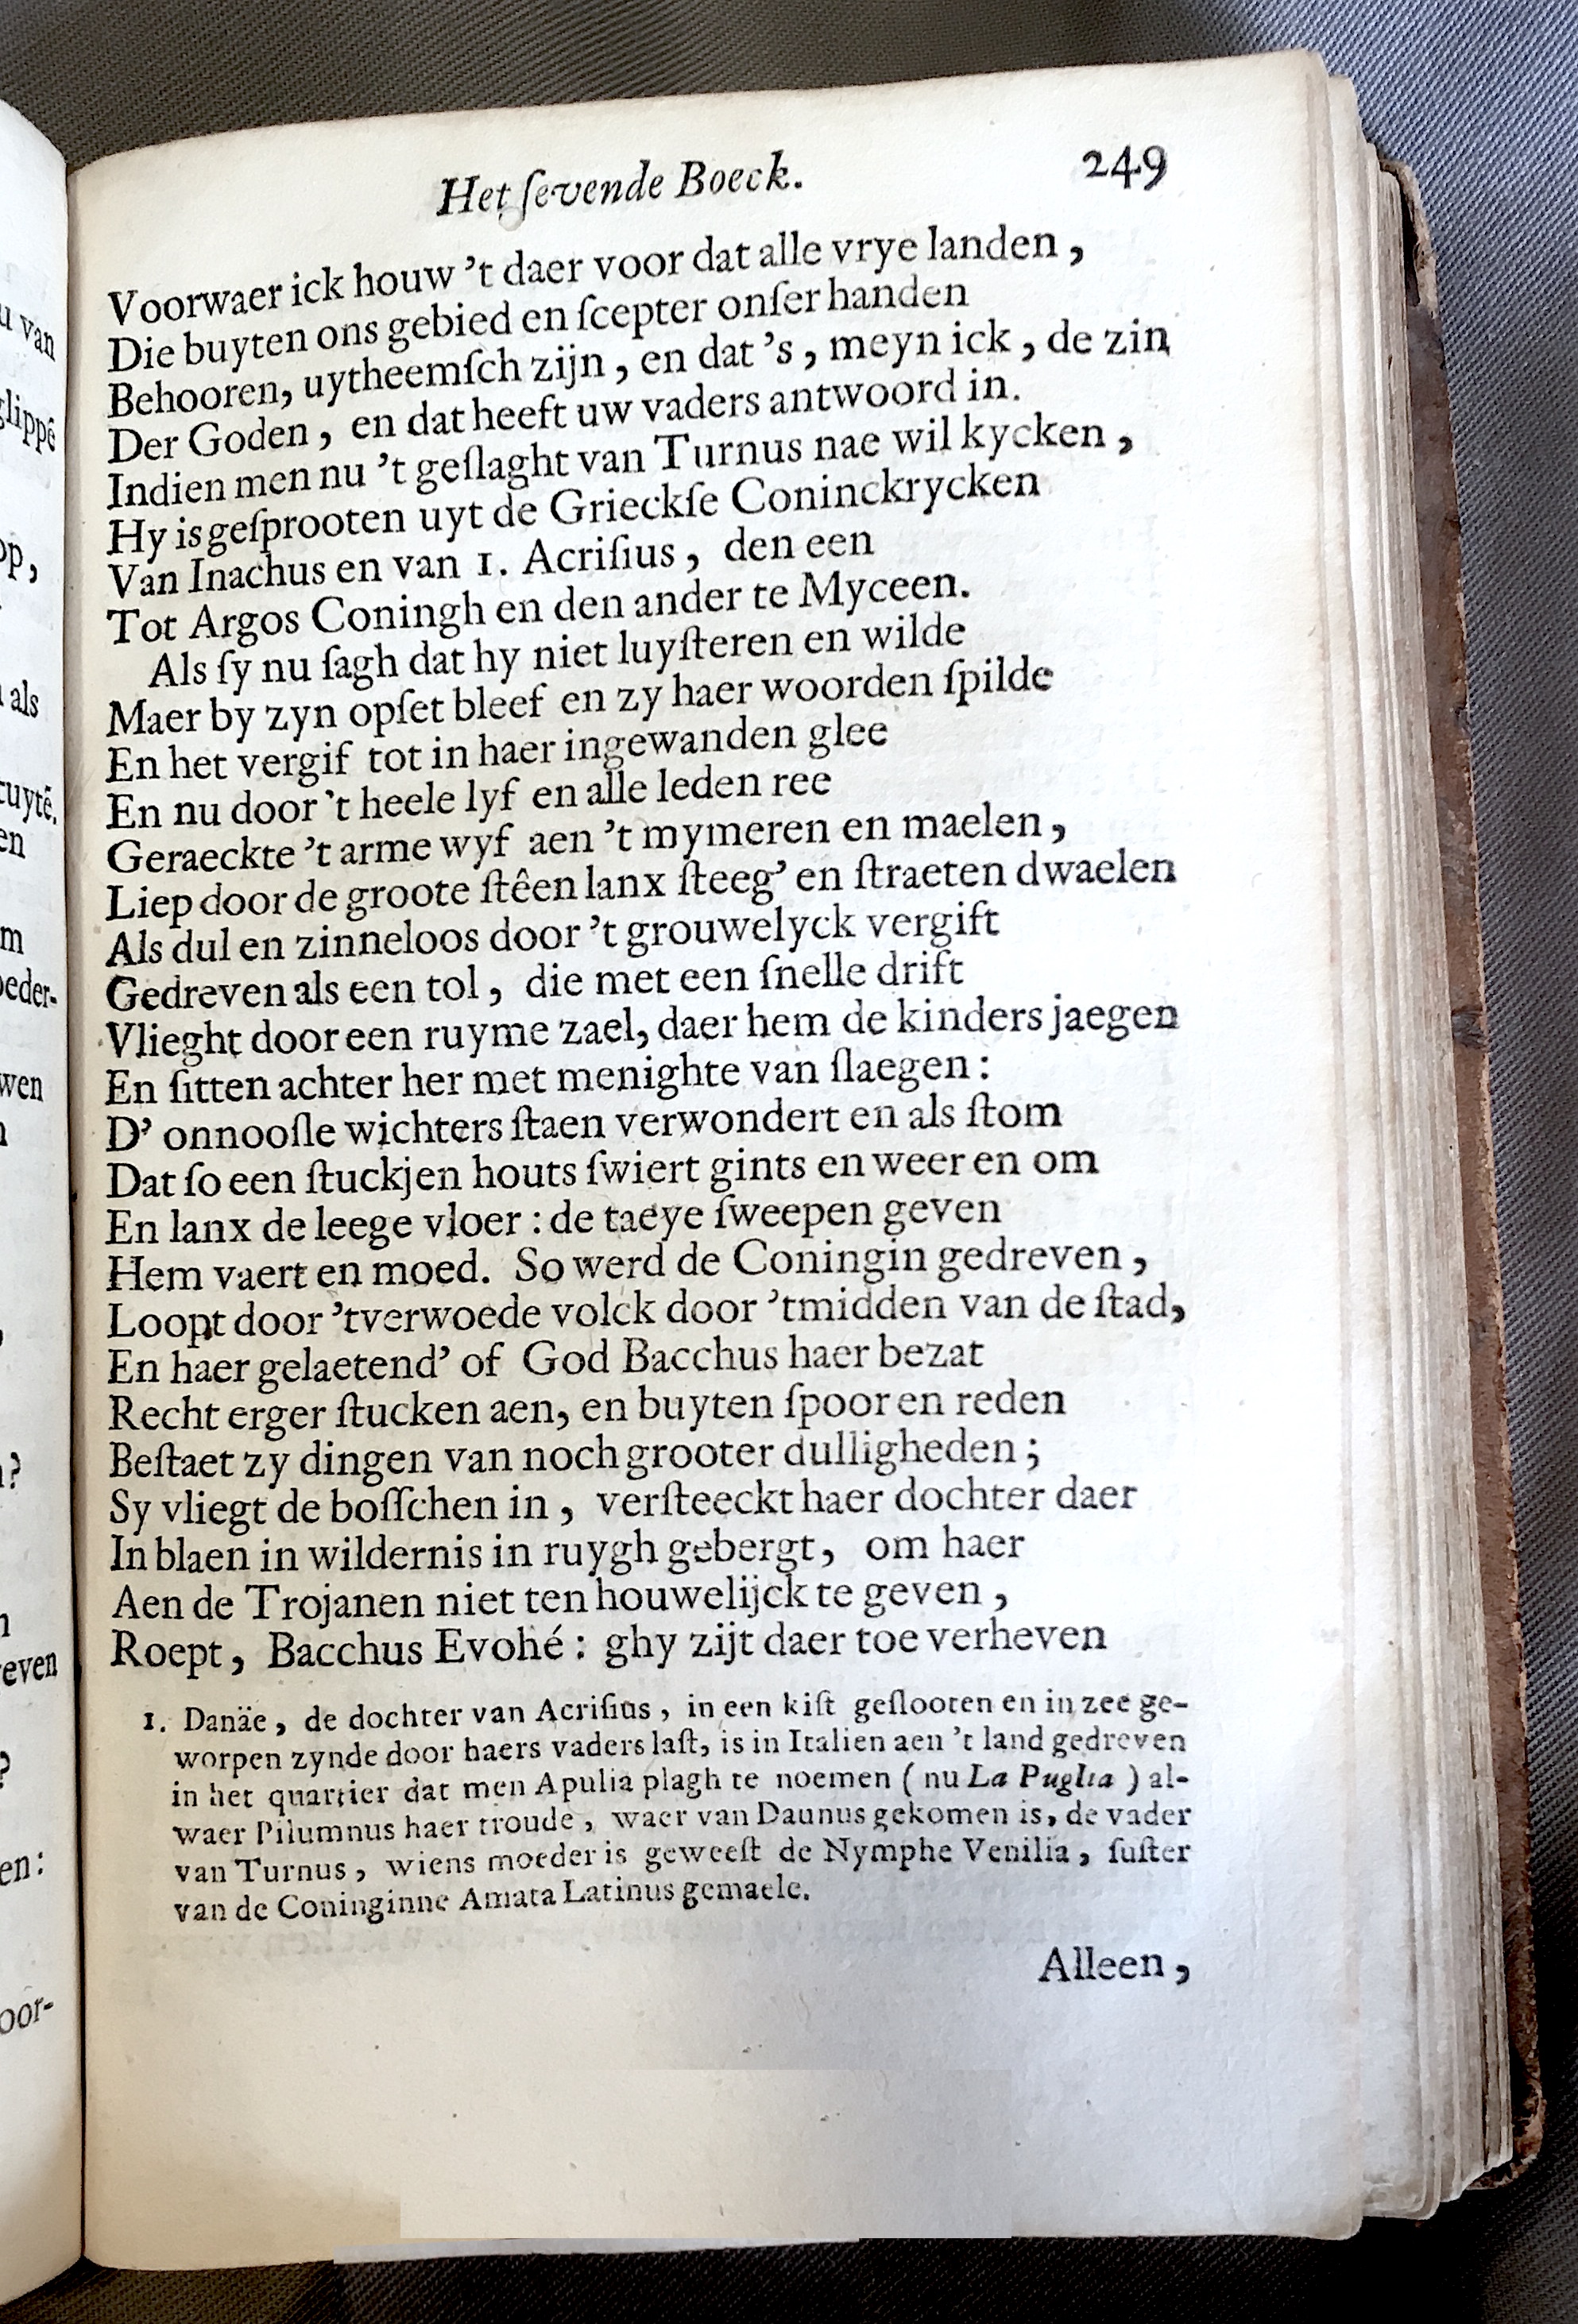 Het ſevende Boeck. 249
Voorwaer ick houw 't daer voor dat alle vrye landen,
Die buyten ons gebied en ſcepter onſer handen
Behooren, uytheemſch zijn, en dat 's, meyn ick, de zin
Der Goden, en dat heeft uw vaders antwoord in.
Indien men nu 't geſlaght van Turnus nae wil kycken,
Hy is geſprooten uyt de Grieckſe Coninckrycken
Van Inachus en van 1. Acriſius, den een
Tot Argos Coningh en den ander te Myceen.
Als ſy nu ſagh dat hy niet luyſteren en wilde
Maer by zyn opſet bleef en zy haer woorden ſpilde
En het vergif tot in haer ingewanden glee
En nu door 't heele lyf en alle leden ree
Geraeckte 't arme wyf aen 't mymeren en maelen,
Liep door de groote ſtêen lanx ſteeg' en ſtraeten dwaelen
Als dul en zinneloos door 't grouwelyck vergift
Gedreven als een tol, die met een ſnelle drift
Vlieght door een ruyme zael, daer hem de kinders jaegen
En ſitten achter her met menighte van ſlaegen:
D' onnooſle wichters ſtaen verwondert en als ſtom
Dat ſo een ſtuckjen houts ſwiert gints en weer en om
En lanx de leege vloer: de taeye ſweepen geven
Hem vaert en moed. So werd de Coningin gedreven,
Loopt door 'tverwoede volck door 'tmidden van de ſtad,
En haer gelaetend' of God Bacchus haer bezat
Recht erger ſtucken aen, en buyten ſpoor en reden
Beſtaet zy dingen van noch grooter dulligheden;
Sy vliegt de boſſchen in, verſteeckt haer dochter daer
In blaen in wildernis in ruygh gebergt, om haer
Aen de Trojanen niet ten houwelijck te geven,
Roept, Bacchus Evohé: ghy zijt daer toe verheven
1. Danäe, de dochter van Acriſius, in een kiſt geſlooten en in zee ge-
worpen zynde door haers vaders laſt, is in Italien aen 't land gedreven
in het quartier dat men Apulia plagh te noemen (nu La Puglia) al-
waer Pilumnus haer troude, waer van Daunus gekomen is, de vader
van Turnus, wiens moeder is geweeſt de Nymphe Venilia, ſuſter
van de Coninginne Amata Latinus gemaele.
Alleen,
u van
glippē
op,
als
tuytē.
en
m
oeder-
wen
n
,
n?
n
even
?
en:
oor-